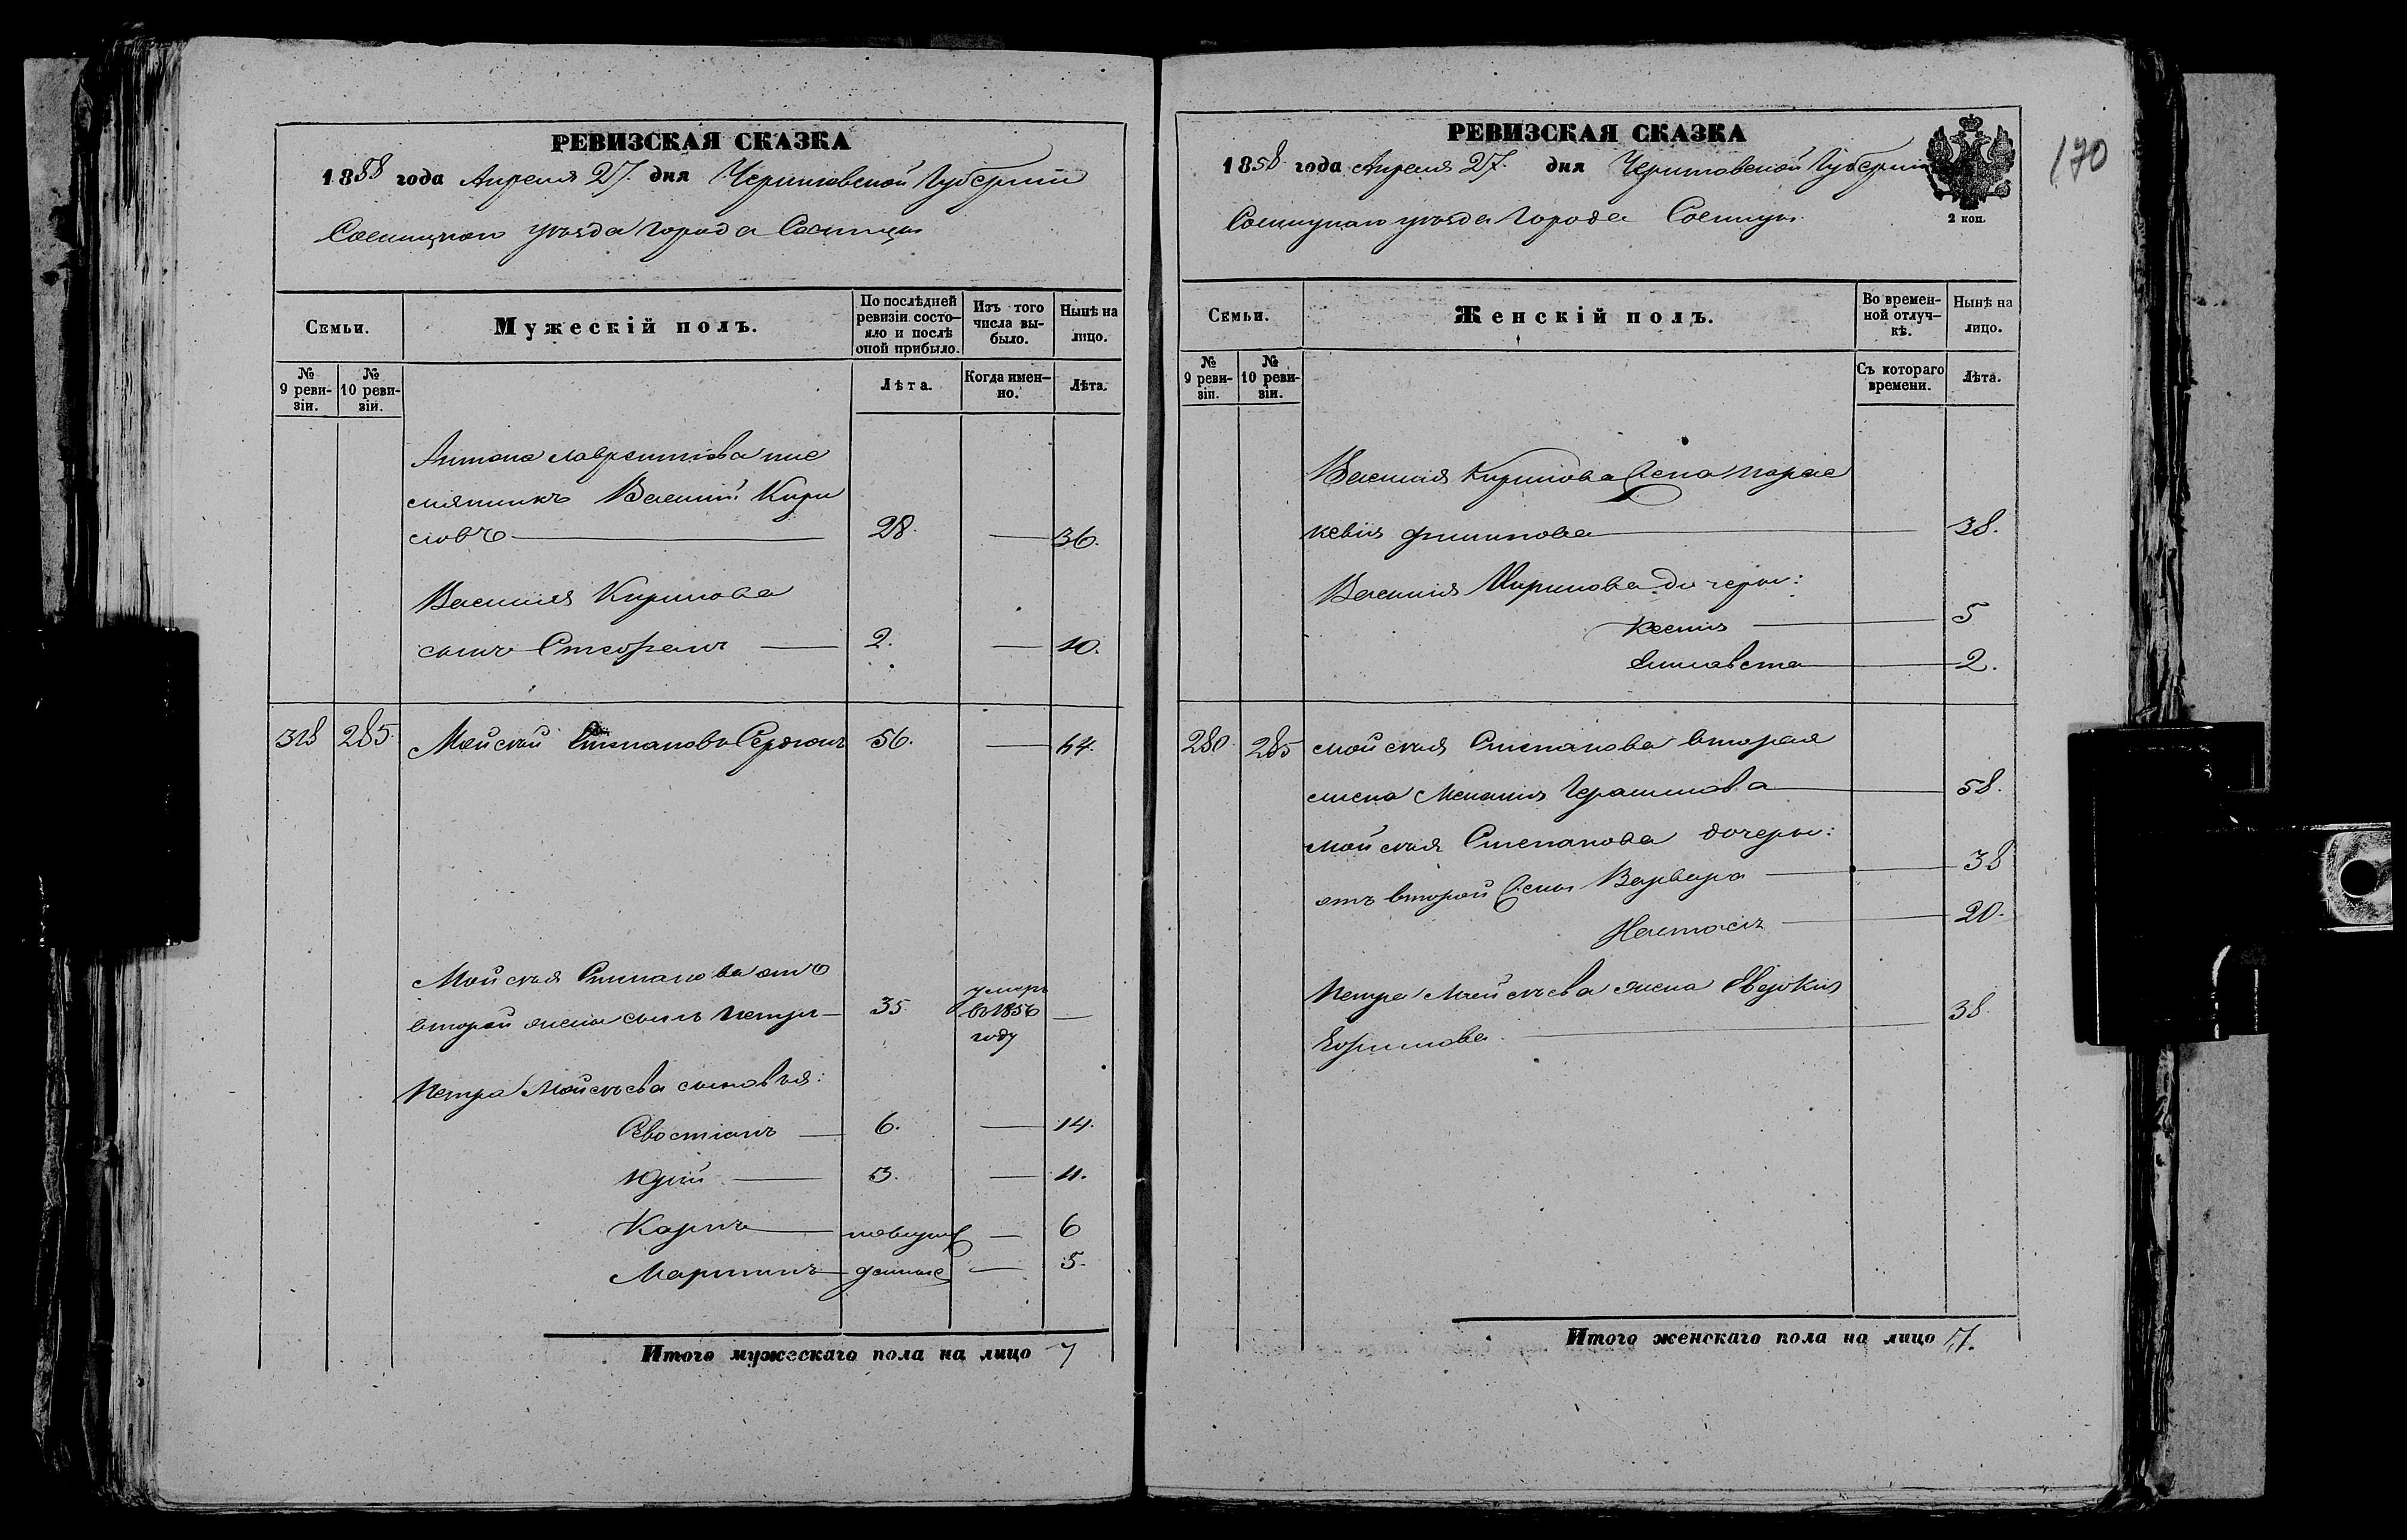 РЕВИЗСКАЯ СКАЗКА
1858 года Апреля 27. дня Черниговской Губернии
Сосницкаго уѣзда Города Сосницы
Семьи.
Мужескій полъ.
По послѣдней ревизіи состо-
яло и послѣ оной прибыло.
Изъ того числа вы-
было.
Нынѣ на лицо.
№ 9 реви-
зіи.
№ 10 реви-
зіи.
Лѣта.
Когда имен-
но.
Лѣта.
Антона Лаврентіева пле
мянникъ Василій Кири
ловъ 28. — 36.
Василия Кирилова
сынъ Стефанъ — 2. — 10.
318 285. Мойсей Степановъ Сердюкъ 56. — 64.
Мойсея Степанова отъ
второй жены сынъ Петръ — 35. умеръ въ 1856 году —
Петра Мойсѣева сыновья:
Севостіанъ — 6. — 14.
Юрій — 3. — 11.
Карпъ — новорож — 6
Мартинъ — денные — 5.
Итого мужескаго пола на лицо 7
РЕВИЗСКАЯ СКАЗКА
1858 года Апреля 27. дня Черниговской Губернии
Сосницкаго уѣзда Города Сосницы.
2 коп.
170
Семьи.
Женскій полъ.
Во времен-
ной отлуч-
кѣ.
Нынѣ на лицо.
№ 9 реви-
зіи.
№ 10 реви-
зіи.
Съ котораго времени.
Лѣта.
Василия Кирилова жена Парас
кевия Филипова — 38.
Василия Кирилова дочери:
Ксения — 5
Елисавета — 2.
280. 285 Мойсея Степанова вторая
жена Мелания Герасимова — 58.
Мойсея Степанова дочери:
отъ второй жены Варвара — 38
Настасія — 20.
Петра Мойсѣева жена Евдокия
Ефимова — 38.
Итого женскаго пола на лицо 7.